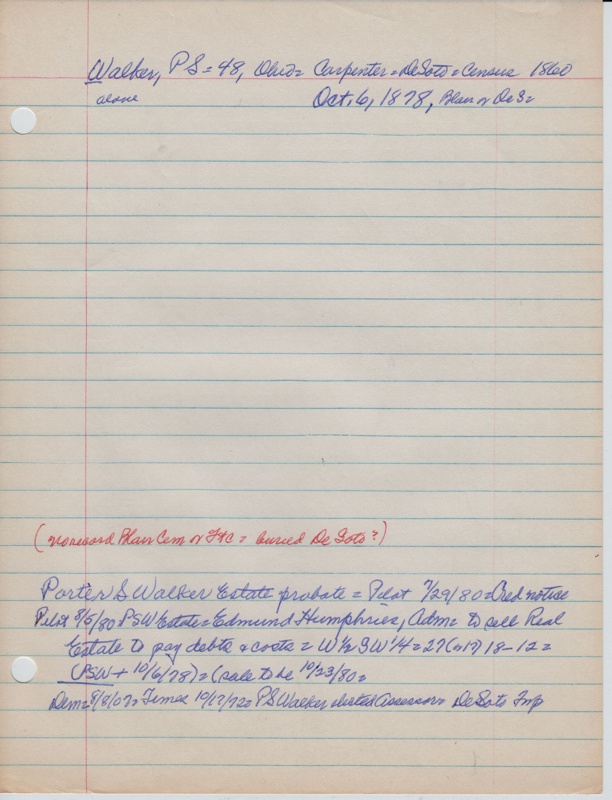 Walker, P S = 48, Ohio = Carpenter = DeSoto = Census 1860
alone Oct. 6, 1878, Blair or De S =
(no record Blair Cem or F+C = buried De Soto?)
Porter S Walker Estate probate = Pilot 7/29/80 = Cred notice
Pilot 8/5/80 PSW Estate = Edmund Humphries, Adm = to sell Real
Estate to pay debts & costs = W 1/2 SW 1/4 = 27 18-12 =
(PSW + 10/6/78) = (sale to be 10/23/80 =
Dem = 8/8/07 = Times 10/17/72 = PS Walker elected Assessor = DeSoto Twp